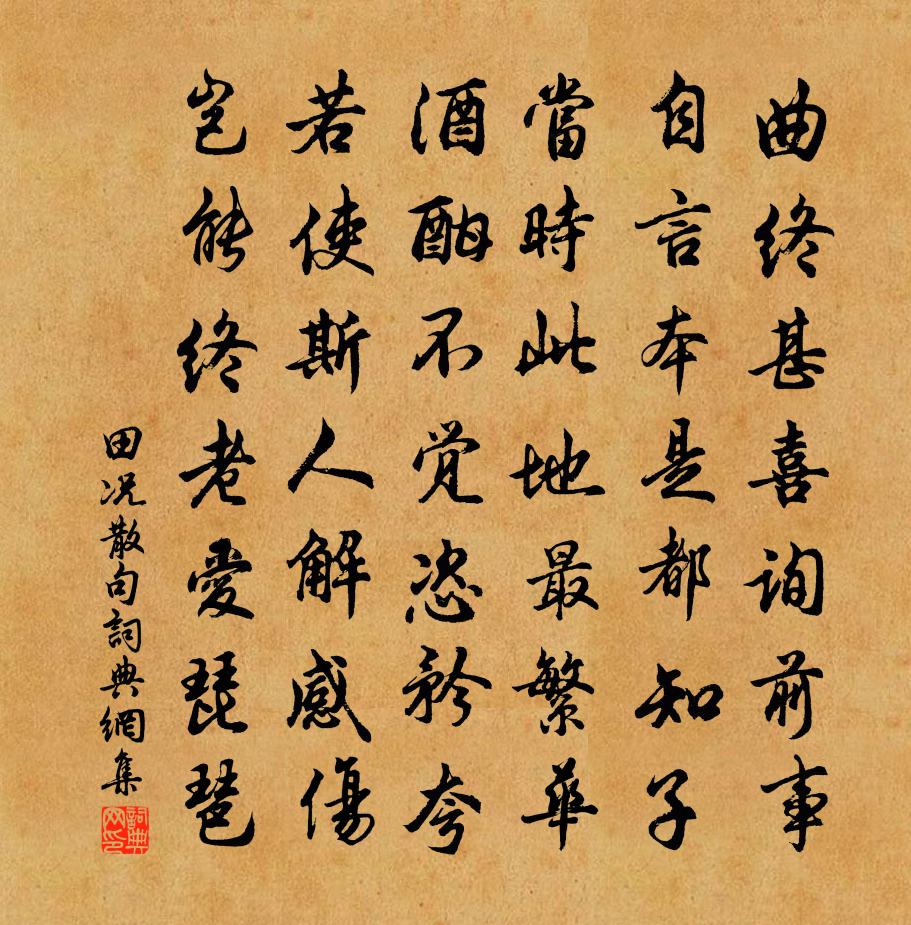 曲终甚喜询前事
自言本是都知子
當時此地最繁華
酒酣不觉恣矜夸
若使斯人解感傷
岂能终老愛琵琶
田况散句詞典網集
詞典网印